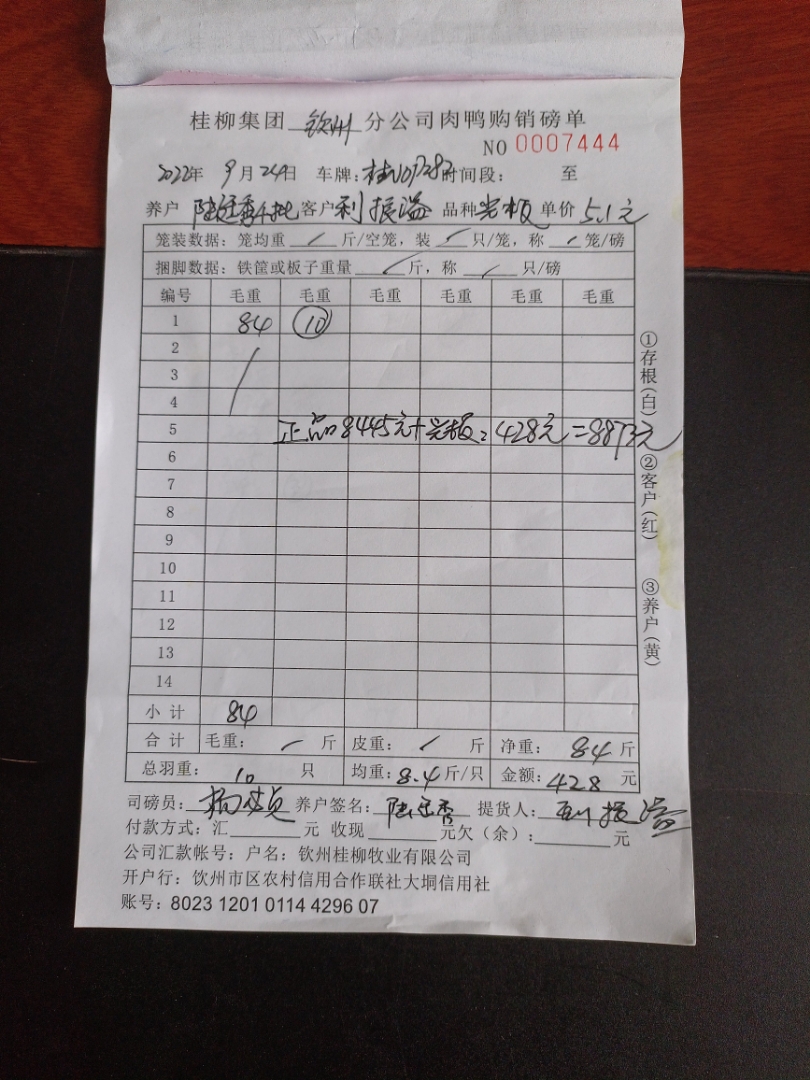 桂柳集团 钦州 分公司肉鸭购销磅单
NO 0007444
2022年 9月24日 车牌: 时间段: 至
养户 客户 利振溢 品种 光板 单价 5.1元
笼装数据: 笼均重 / 斤/空笼, 装 / 只/笼, 称 / 笼/磅
捆脚数据: 铁筐或板子重量 / 斤, 称 / 只/磅
编号 毛重 毛重 毛重 毛重 毛重 毛重
1 84 10
2
3
4
5 正品8445元+光板:428元=8873元
6
7
8
9
10
11
12
13
14
小计 84
合计 毛重: / 斤 皮重: / 斤 净重: 84 斤
总羽重: 10 只 均重: 8.4 斤/只 金额: 428 元
司磅员: 养户签名: 提货人: 利振溢
付款方式: 汇 元 收现 元欠(余): 元
公司汇款帐号: 户名: 钦州桂柳牧业有限公司
开户行: 钦州市区农村信用合作联社大垌信用社
账号: 8023 1201 0114 4296 07
①存根(白)
②客户(红)
③养户(黄)